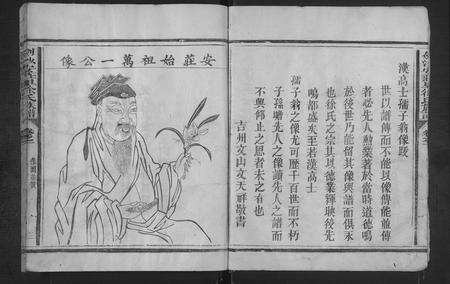 漢高士孺子翁像跋
世以譜傳而不能以像傳能並傳
者必先人勲藝著於當時道德鳴
於後世乃能留其像與譜而俱永
也徐氏之宗其以德業輝映後先
嗚都盛矣至若漢高士
孺子翁之像尤可歷千百世而不朽
子孫睹先人之像讀先人之譜而
不興仰止之思者未之有也
吉州文山文天祥敬書
安莊始祖萬一公像